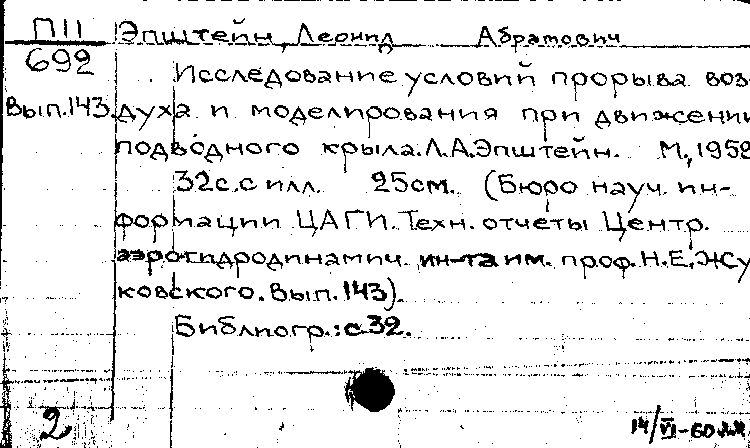 П11 Эпштейн, Леонид Абрамович
692 Исследование условий прорыва воз-
Вып.143. духа и моделирования при движении
подводного крыла. Л.А.Эпштейн. М., 1958
32с. с илл. 25см. (Бюро науч. ин-
формации ЦАГИ. Техн. отчеты Центр.
аэрогидродинамич. ин-та им. проф. Н.Е.Жу
ковского. Вып.143).
Библиогр.: с.32.
2
14/VI-60